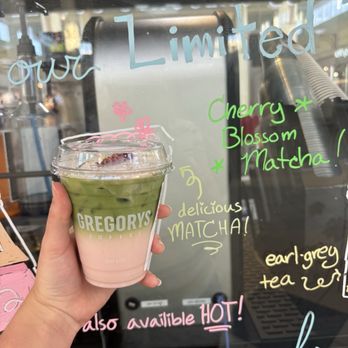 our Limited
Cherry
Blossom
Matcha!
GREGORYS
COFFEE
delicious
MATCHA!
earl-grey
tea
also availible HOT!